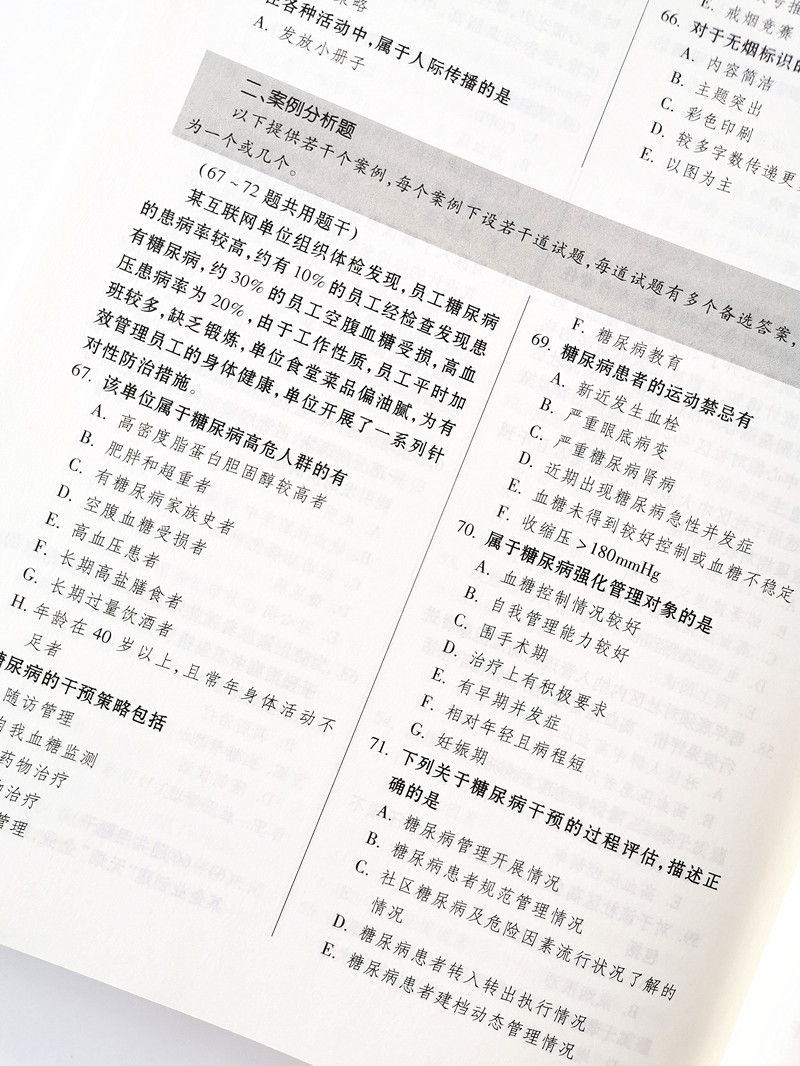 策略
在各种活动中，属于人际传播的是
A. 发放小册子
E. 戒烟竞赛
66. 对于无烟标识的
A. 内容简洁
B. 主题突出
C. 彩色印刷
D. 较多字数传递更
E. 以图为主
二、案例分析题
以下提供若干个案例，每个案例下设若干道试题，每道试题有多个备选答案，
为一个或几个。
(67～72 题共用题干)
某互联网单位组织体检发现，员工糖尿病
的患病率较高，约有 10% 的员工经检查发现患
有糖尿病，约 30% 的员工空腹血糖受损，高血
压患病率为 20%，由于工作性质，员工平时加
班较多，缺乏锻炼，单位食堂菜品偏油腻，为有
效管理员工的身体健康，单位开展了一系列针
对性防治措施。
67. 该单位属于糖尿病高危人群的有
A. 高密度脂蛋白胆固醇较高者
B. 肥胖和超重者
C. 有糖尿病家族史者
D. 空腹血糖受损者
E. 高血压患者
F. 长期高盐膳食者
G. 长期过量饮酒者
H. 年龄在 40 岁以上，且常年身体活动不
足者
糖尿病的干预策略包括
随访管理
自我血糖监测
药物治疗
治疗
管理
F. 糖尿病教育
69. 糖尿病患者的运动禁忌有
A. 新近发生血栓
B. 严重眼底病变
C. 严重糖尿病肾病
D. 近期出现糖尿病急性并发症
E. 血糖未得到较好控制或血糖不稳定
F. 收缩压＞180mmHg
70. 属于糖尿病强化管理对象的是
A. 血糖控制情况较好
B. 自我管理能力较好
C. 围手术期
D. 治疗上有积极要求
E. 有早期并发症
F. 相对年轻且病程短
G. 妊娠期
71. 下列关于糖尿病干预的过程评估，描述正
确的是
A. 糖尿病管理开展情况
B. 糖尿病患者规范管理情况
C. 社区糖尿病及危险因素流行状况了解的
情况
D. 糖尿病患者转入转出执行情况
E. 糖尿病患者建档动态管理情况